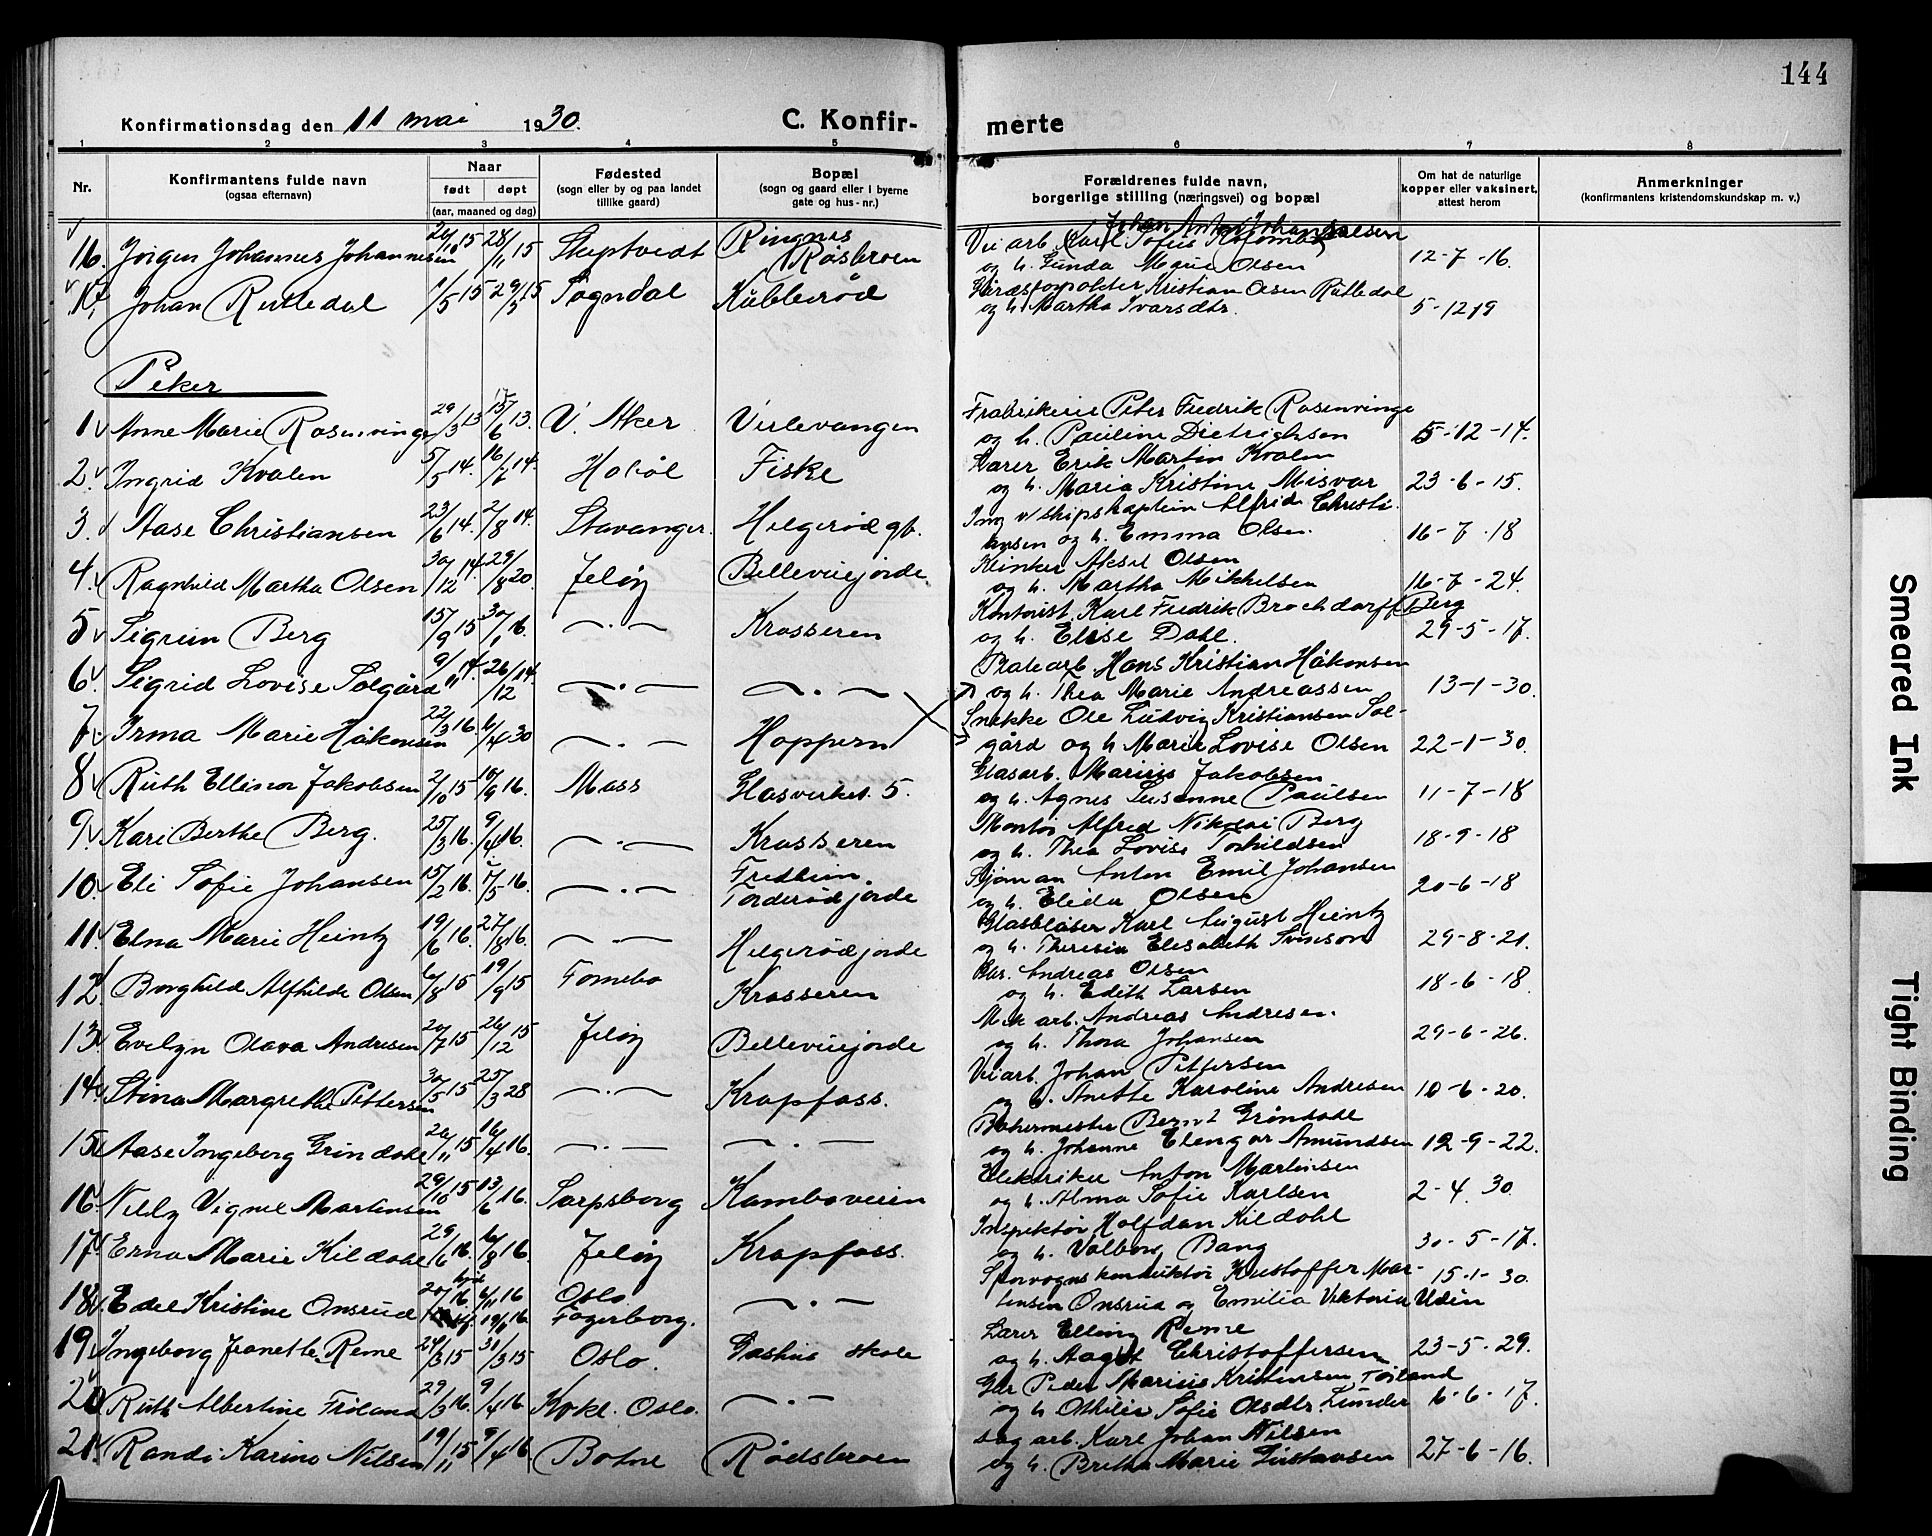 144
Konfirmationsdag den 11 mai 1930.
C. Konfir-
merte
1 2 3 4 5 6 7 8
Nr.
Konfirmantens fulde navn
(ogsaa efternavn)
Naar
født døpt
(aar, maaned og dag)
Fødested
(sogn eller by og paa landet
tillike gaard)
Bopæl
(sogn og gaard eller i byerne
gate og hus-nr.)
Forældrenes fulde navn,
borgerlige stilling (næringsvei) og bopæl
Om hat de naturlige
kopper eller vaksinert,
attest herom
Anmerkninger
(konfirmantens kristendomskundskap m. v.)
Johan Anton Johannesen
16. Jørgen Johannes Johannesen 26/10 15 28/11 15 Skeptvedt Ringnes Røsbroen Vei arb. og h. Gunda Olsen 12-7-16.
17. Johan Rutledal 1/5 15 29/5 15 Sogndal Kubberød Kristian Olsen Rutledal
og h. Martha Ivarsdtr. 5-12 19
Piker
1 Anne Marie Rosenvinge 29/3 13 15/6 13. V. Aker Verlevangen Fabrikeier Peter Fredrik Rosenvinge
og h. Pauline Dietrichsen 5-12-14.
2. Ingrid Kvalen 5/5 14. 16/7 14. Hobøl Fiske Lærer Erik Martin Kvalen
og h. Maria Kristine Misvær 23-6-15.
3. Aase Christiansen 23/6 14. 2/8 14. Stavanger. Helgerød gt. Ing v/ skipskaptein Alfred Christi-
ansen og h. Emma Olsen. 16-7-18
4. Ragnhild Martha Olsen 30/12 14. 29/8 20. Jeløy Bellevuejorde Klinker Aksel Olsen
og h. Martha Mikkelsen 16-7-24.
5 Sigrun Berg 15/9 15 30/1 16. — . — Krosseren Kontorist Karl Fredrik Brochdorff Berg
og h. Elise Dahl. 29-5-17.
6. Sigrid Lovise Solgård 9/11 14. 26/12 14. — . — — . — Hans Kristian Håkonsen
og h. Thea Marie Andreassen 13-1-30.
7. Irma Marie Håkonsen 22/3 16. 6/4 30 — . — Hoppern Snekke Ole Ludvig Kristiansen Sol-
gård og h Marie Lovise Olsen 22-1-30.
8 Ruth Ellinor Jakobsen 2/10 15 10/9 16. Moss Glasverket 5. Glasarb. Marius Jakobsen
og h. Agnes Susanne Paulsen 11-7-18
9. Kari Berthe Berg. 25/3 16. 9/4 16. — . — Krosseren Montør Alfred Nikolai Berg
og h. Thea Lovise Torkildsen 18-9-18
10. Eli Sofie Johansen 15/2 16. 1/5 16. — . — Fredheim. Torderødjorde Sjøman Anton Emil Johansen
og h. Elida Olsen 20-6-18
11. Elna Marie Heintz 19/6 16. 27/8 16. — . — Helgerødjorde Glasblåser Karl August Heintz
og h. Theresia Elisabeth Svenson 29-8-21.
12. Borghild Alfhilde Olsen 6/8 15 19/9 15 Fornebo Krosseren Andreas Olsen
og h. Edith Larsen 18-6-18.
13. Evelyn Olava Andresen 20/7 15 26/12 15 Jeløy Bellevuejorde Mek arb. Andreas Andresen.
og h. Thora Johansen 29-6-26.
14. Stina Margrethe Pettersen 30/5 15 25/3 28 — . — Krapfoss. Vei arb. Johan Pettersen
og h. Anette Karoline Andresen 10-6-20.
15. Aase Ingeborg Grindahl 26/11 15 16/4 16. — . — — . — Bernt Grindahl
og h. Johanne Amundsen 12-9-22.
16. Nelly Vignel Martinsen 29/10 15 13/6 16. Sarpsborg Kamboveien Elektriker Anton Martinsen
og h. Alma Sofie Karlsen 2-4.30.
17. Erna Marie Kildahl 29/6 16. 6/8 16. Jeløy Krapfoss. Inspektør Halfdan Kildahl
og h. Valborg Bang 30-5-17.
18. Edel Kristine Onsrud 20/7 16 6/11 16 Oslo Fagerborg. — . — Sporvognskonduktør Kristoffer Mar-
tensen Onsrud og Emilia Viktoria Udin 15-1-30.
19. Ingeborg Jeanette Reme 24/3 15 31/3 15 Oslo. Gashus skole Lærer Elling Reme
og h. Aagot Christoffersen 23-5-29.
20 Ruth Albertine Friland 29/3 16. 9/4 16 Oslo. — . — Peder Marius Kristensen
og h Othilie Sofie Olsdtr. Lunder 6-6-17.
21. Randi Karine Nilsen 19/11 15 9/4 16 Botne Rødsbroen Sag arb. Karl Johan Nilsen
og h. Brithe Marie Gustavsen 27-6-16.
Smeared Ink
Tight Binding